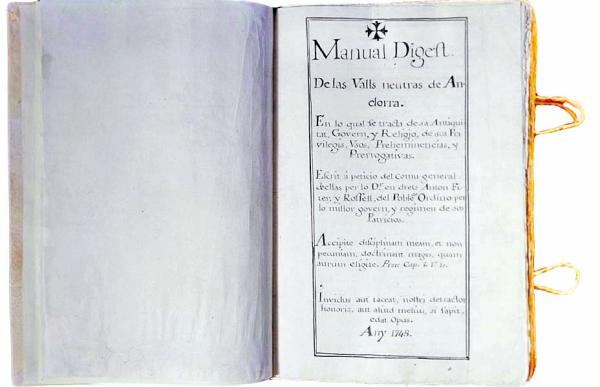 Manual Digest.
De las Valls neutras de An-
dorra.
En lo qual se tracta de sa Antiqui-
tat, Govern, y Religio, de sos Pri-
vilegis, Usos, Preheminencias, y
Prerrogativas.
Escrit á peticio del Comu general
de ellas per lo Dr. en drets Anton Fi-
ter, y Rossell, del Poble Ordino per
lo millor govern, y regimen de sos
Patricios.
Accipite disciplinam meam, et non
pecuniam, doctrinam magis, quam
aurum eligite. Prov. Cap. 8.
Invidus aut taceat, nostri detractor
honoris, aut aliud melius, si sapit,
edat Opus.
Any 1748.